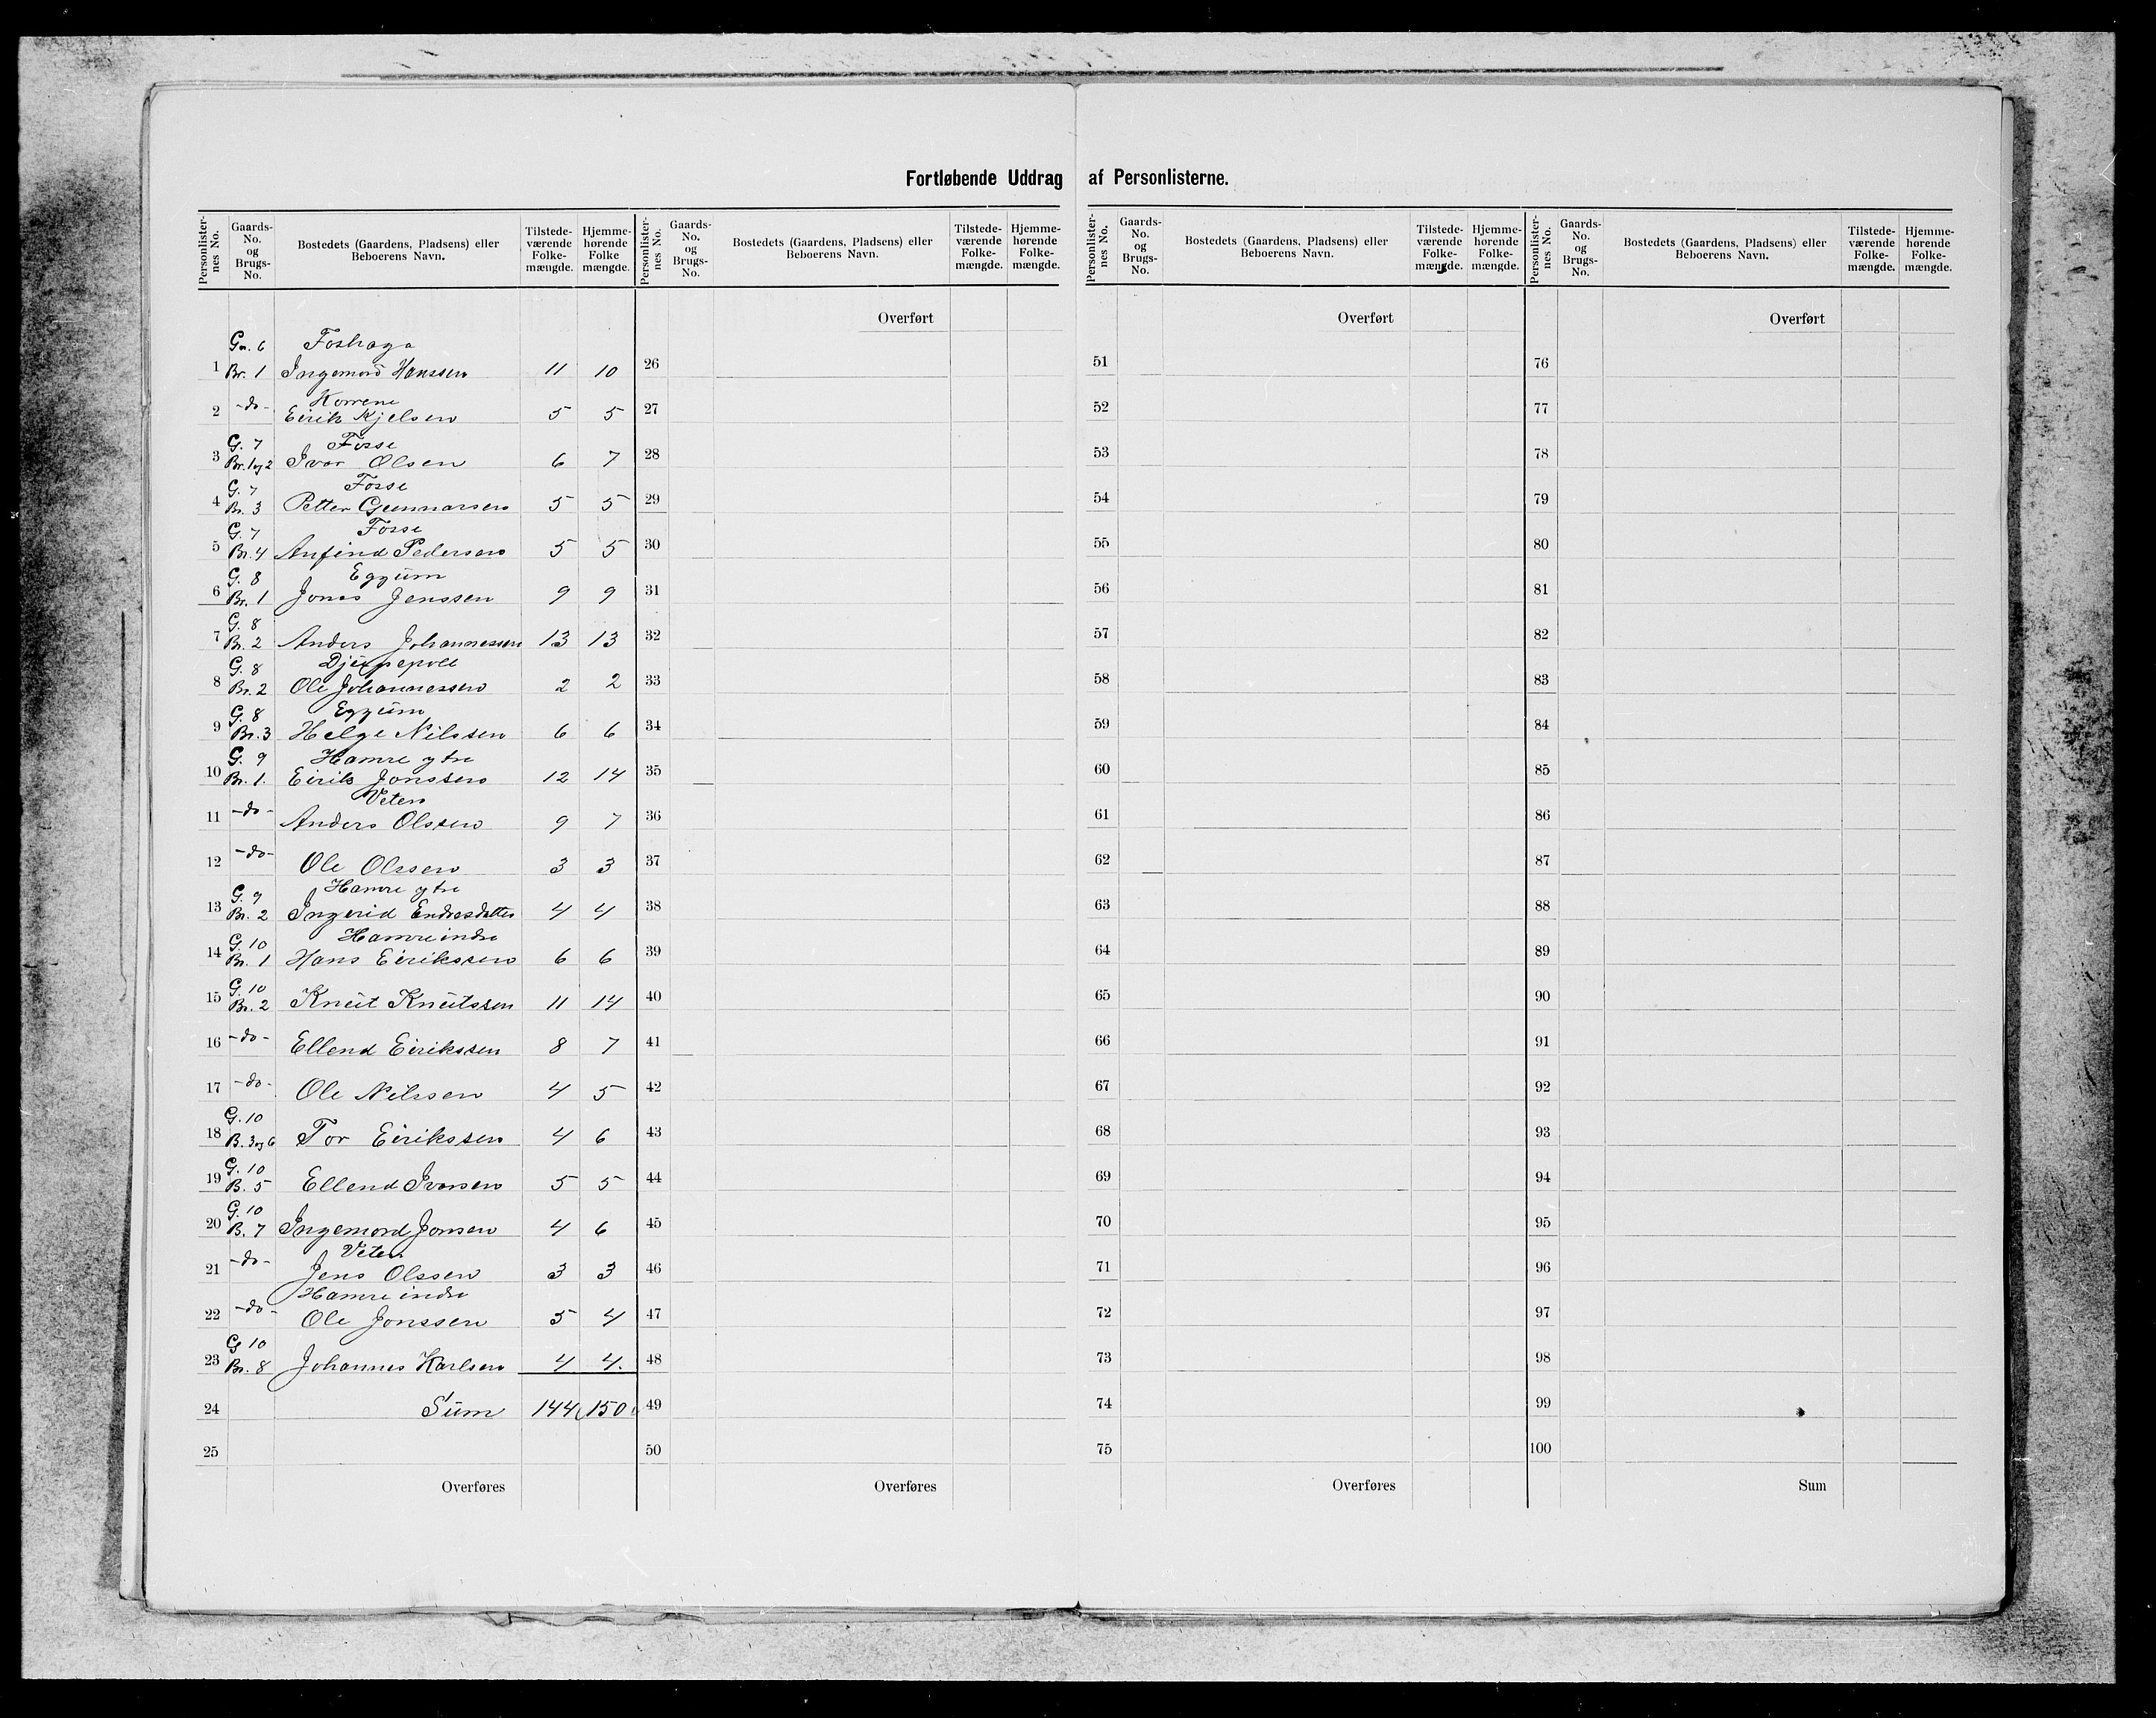 Fortløbende Uddrag af Personlisterne.
Personlisternes No. Gaards-No. og Brugs-No. Bostedets (Gaardens, Pladsens) eller Beboerens Navn. Tilstedeværende Folkemængde. Hjemmehørende Folke mængde.
Personlisternes No. Gaards-No. og Brugs-No. Bostedets (Gaardens, Pladsens) eller Beboerens Navn. Tilstedeværende Folkemængde. Hjemmehørende Folkemængde.
Personlisternes No. Gaards-No. og Brugs-No. Bostedets (Gaardens, Pladsens) eller Beboerens Navn. Tilstedeværende Folkemængde. Hjemmehørende Folkemængde.
Personlisternes No. Gaards-No. og Brugs-No. Bostedets (Gaardens, Pladsens) eller Beboerens Navn. Tilstedeværende Folkemængde. Hjemmehørende Folkemængde.
Overført Overført Overført
Ga. 6 Foshaga
1 Br. 1 Ingemord Hanssen 11 10 26 51 76
Korrene
2 -do- Eirik Kjelsen 5 5 27 52 77
G. 7 Fosse
3 Br. 1 og 2 Ivar Olsen 6 7 28 53 78
G. 7 Fosse
4 Br. 3 Petter Gunnarsen 5 5 29 54 79
G. 7 Fosse
5 Br. 4 Anfind Pedersen 5 5 30 55 80
G. 8 Eggum
6 Br. 1 Jones Jenssen 9 9 31 56 81
G. 8
7 Br. 2 Anders Johannessen 13 13 32 57 82
G. 8
8 Br. 2 Ole Johannessen 2 2 33 58 83
G. 8 Eggum
9 Br. 3 Helge Nilssen 6 6 34 59 84
G. 9 Hamre ytre
10 Br. 1. Eirik Jonssen 12 14 35 60 85
Veten
11 -do- Anders Olssen 9 7 36 61 86
12 -do- Ole Olssen 3 3 37 62 87
G. 9 Hamre ytre
13 Br. 2 Ingerid Endresdatter 4 4 38 63 88
G. 10 Hamre indre
14 Br. 1 Hans Eirikssen 6 6 39 64 89
G. 10
15 Br. 2 Knut Knutssen 11 14 40 65 90
16 -do- Ellend Eirikssen 8 7 41 66 91
17 -do- Ole Nilssen 4 5 42 67 92
G. 10
18 B. 3 og 6 Tor Eirikssen 4 6 43 68 93
G. 10
19 B. 5 Ellend Ivarsen 5 5 44 69 94
G. 10
20 B. 7 Ingemord Jonsen 4 6 45 70 95
Veten
21 -do- Jens Olssen 3 3 46 71 96
Hamre indre
22 -do- Ole Jonssen 5 4 47 72 97
G 10
23 Br. 8 Johannes Karlsen 4 4. 48 73 98
24 Sum 144 150 49 74 99
25 50 75 100
Overføres Overføres Overføres Sum